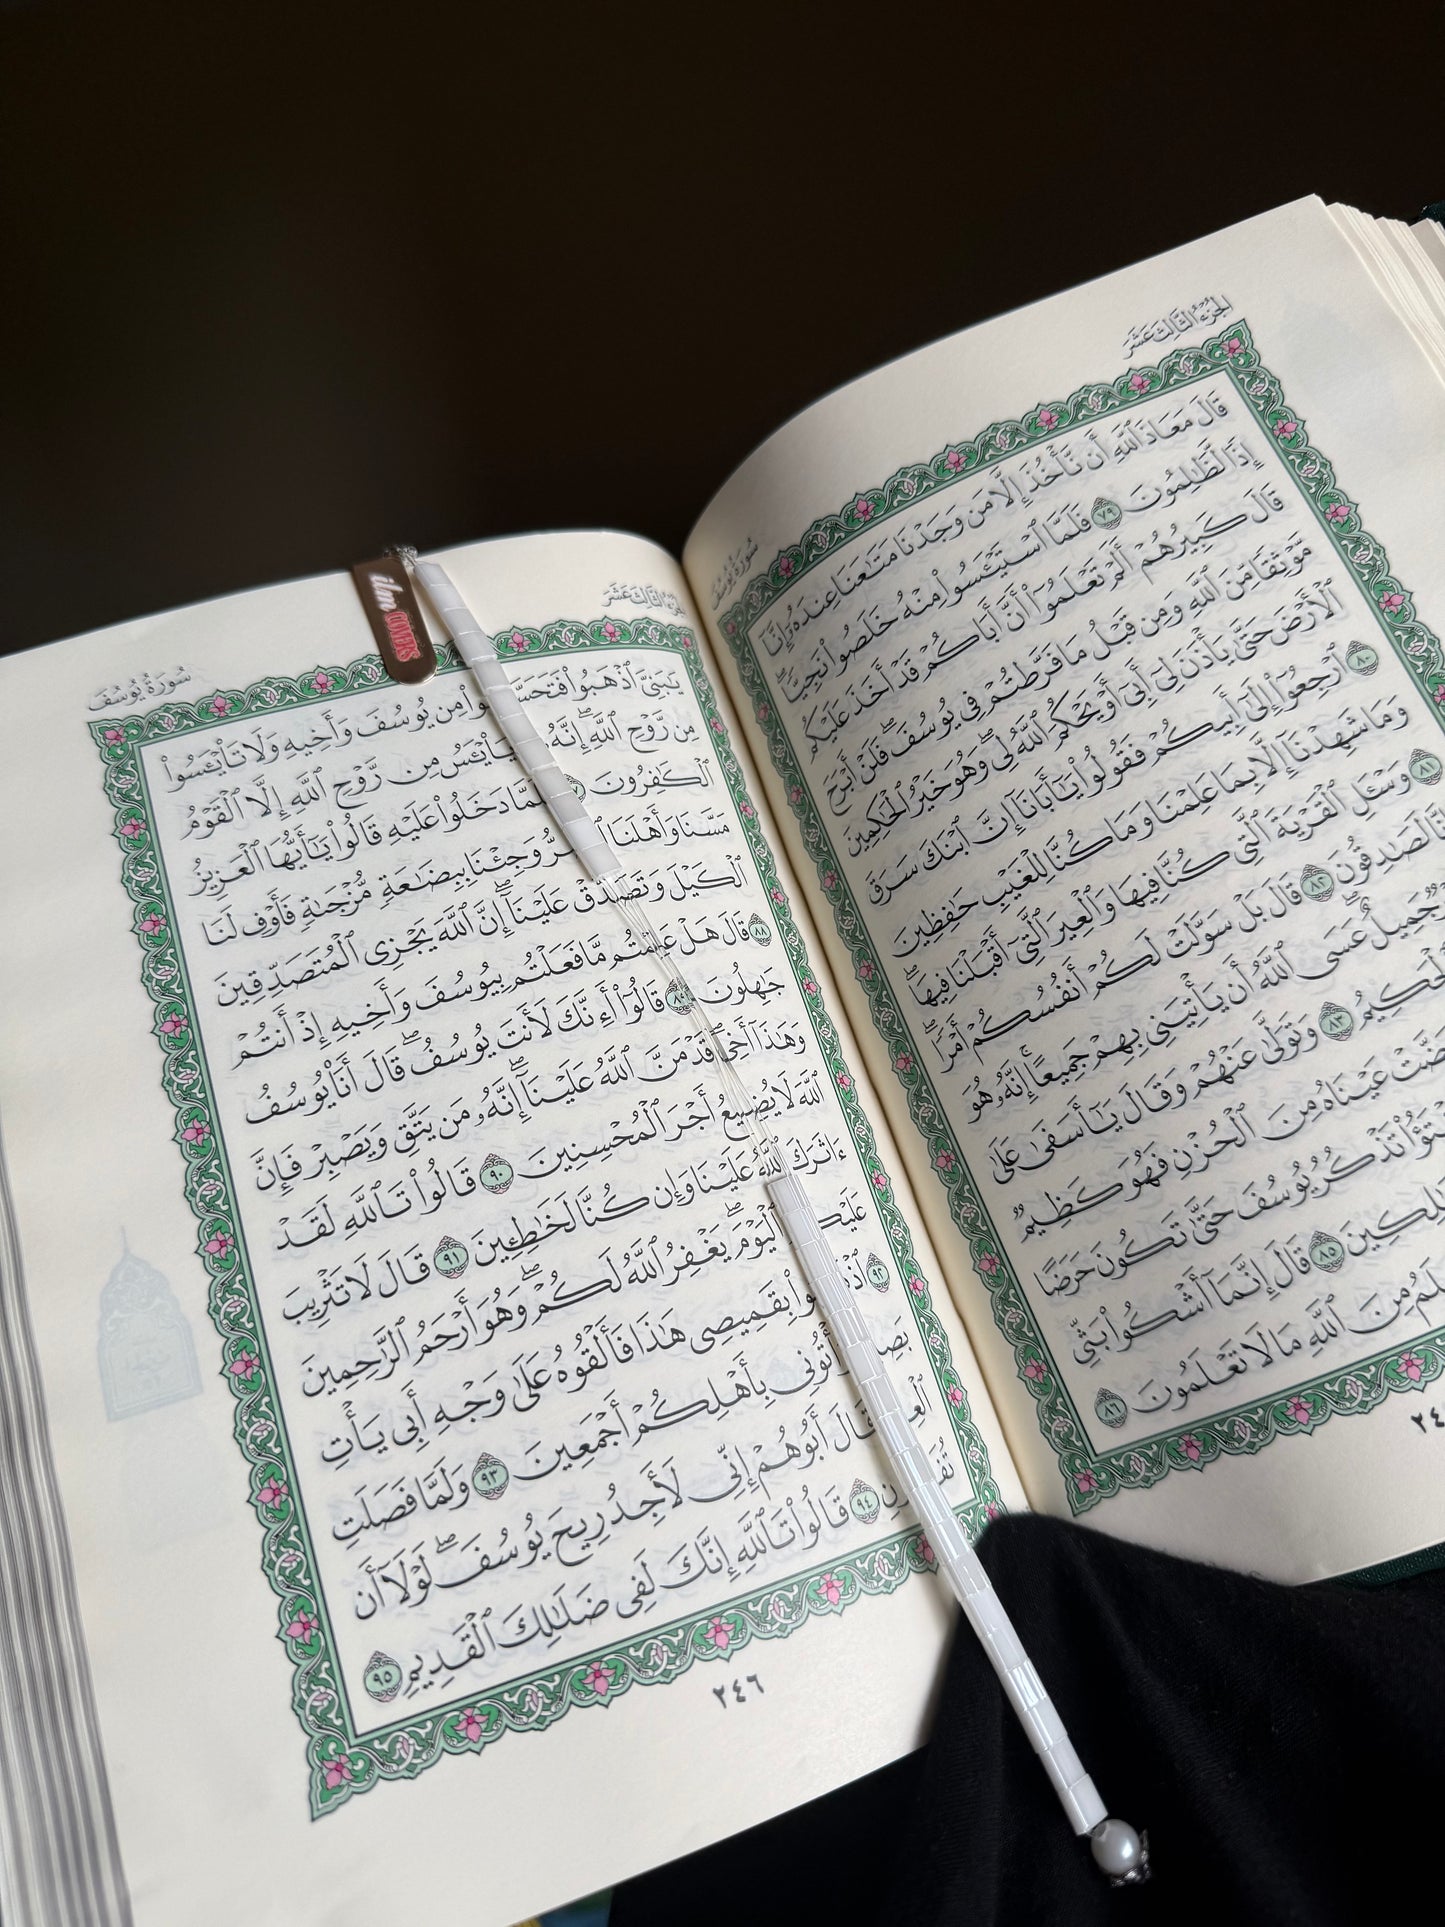 الجُزْءُ الثَّالِثَ عَشَرَ
سُورَةُ يُوسُفَ
قَالَ مَعَاذَ ٱللَّهِ أَن نَّأْخُذَ إِلَّا مَن وَجَدْنَا مَتَٰعَنَا عِندَهُۥٓ إِنَّآ
إِذًا لَّظَٰلِمُونَ ٧٩ فَلَمَّا ٱسْتَيْـَٔسُوا۟ مِنْهُ خَلَصُوا۟ نَجِيًّاۖ
قَالَ كَبِيرُهُمْ أَلَمْ تَعْلَمُوٓا۟ أَنَّ أَبَاكُمْ قَدْ أَخَذَ عَلَيْكُم
مَّوْثِقًا مِّنَ ٱللَّهِ وَمِن قَبْلُ مَا فَرَّطتُمْ فِى يُوسُفَۖ فَلَنْ أَبْرَحَ
ٱلْأَرْضَ حَتَّىٰ يَأْذَنَ لِىٓ أَبِىٓ أَوْ يَحْكُمَ ٱللَّهُ لِىۖ وَهُوَ خَيْرُ ٱلْحَٰكِمِينَ
٨٠ ٱرْجِعُوٓا۟ إِلَىٰٓ أَبِيكُمْ فَقُولُوا۟ يَٰٓأَبَانَآ إِنَّ ٱبْنَكَ سَرَقَ
وَمَا شَهِدْنَآ إِلَّا بِمَا عَلِمْنَا وَمَا كُنَّا لِلْغَيْبِ حَٰفِظِينَ
٨١ وَسْـَٔلِ ٱلْقَرْيَةَ ٱلَّتِى كُنَّا فِيهَا وَٱلْعِيرَ ٱلَّتِىٓ أَقْبَلْنَا فِيهَاۖ
لَصَٰدِقُونَ ٨٢ قَالَ بَلْ سَوَّلَتْ لَكُمْ أَنفُسُكُمْ أَمْرًاۖ
جَمِيلٌۖ عَسَى ٱللَّهُ أَن يَأْتِيَنِى بِهِمْ جَمِيعًاۚ إِنَّهُۥ هُوَ
ٱلْحَكِيمُ ٨٣ وَتَوَلَّىٰ عَنْهُمْ وَقَالَ يَٰٓأَسَفَىٰ عَلَىٰ
عَيْنَاهُ مِنَ ٱلْحُزْنِ فَهُوَ كَظِيمٌ
تَذْكُرُ يُوسُفَ حَتَّىٰ تَكُونَ حَرَضًا
٨٥ قَالَ إِنَّمَآ أَشْكُوا۟ بَثِّى
مِنَ ٱللَّهِ مَا لَا تَعْلَمُونَ ٨٦
الجُزْءُ الثَّالِثَ عَشَرَ
سُورَةُ يُوسُفَ
ilm
COVERS
يَٰبَنِىَّ ٱذْهَبُوا۟ فَتَحَسَّسُوا۟ مِن يُوسُفَ وَأَخِيهِ وَلَا تَا۟يْـَٔسُوا۟
مِن رَّوْحِ ٱللَّهِۖ إِنَّهُۥ يَا۟يْـَٔسُ مِن رَّوْحِ ٱللَّهِ إِلَّا ٱلْقَوْمُ
ٱلْكَٰفِرُونَ دَخَلُوا۟ عَلَيْهِ قَالُوا۟ يَٰٓأَيُّهَا ٱلْعَزِيزُ
مَسَّنَا وَأَهْلَنَا وَجِئْنَا بِبِضَٰعَةٍ مُّزْجَىٰةٍ فَأَوْفِ لَنَا
ٱلْكَيْلَ وَتَصَدَّقْ عَلَيْنَآۖ إِنَّ ٱللَّهَ يَجْزِى ٱلْمُتَصَدِّقِينَ
٨٨ قَالَ هَلْ عَلِمْتُم مَّا فَعَلْتُم بِيُوسُفَ وَأَخِيهِ إِذْ أَنتُمْ
جَٰهِلُونَ ٨٩ قَالُوٓا۟ أَءِنَّكَ لَأَنتَ يُوسُفُۖ قَالَ أَنَا۠ يُوسُفُ
وَهَٰذَآ أَخِىۖ قَدْ مَنَّ ٱللَّهُ عَلَيْنَآۖ إِنَّهُۥ مَن يَتَّقِ وَيَصْبِرْ فَإِنَّ
ٱللَّهَ لَا يُضِيعُ أَجْرَ ٱلْمُحْسِنِينَ ٩٠ قَالُوا۟ تَٱللَّهِ لَقَدْ
ءَاثَرَكَ ٱللَّهُ عَلَيْنَا وَإِن كُنَّا لَخَٰطِـِٔينَ ٩١ قَالَ لَا تَثْرِيبَ
عَلَيْكُمُ ٱلْيَوْمَۖ يَغْفِرُ ٱللَّهُ لَكُمْۖ وَهُوَ أَرْحَمُ ٱلرَّٰحِمِينَ
٩٢ ٱذْهَبُوا۟ بِقَمِيصِى هَٰذَا فَأَلْقُوهُ عَلَىٰ وَجْهِ أَبِى يَأْتِ
وَأْتُونِى بِأَهْلِكُمْ أَجْمَعِينَ ٩٣ وَلَمَّا فَصَلَتِ
قَالَ أَبُوهُمْ إِنِّى لَأَجِدُ رِيحَ يُوسُفَۖ لَوْلَآ أَن
٩٤ قَالُوا۟ تَٱللَّهِ إِنَّكَ لَفِى ضَلَٰلِكَ ٱلْقَدِيمِ ٩٥
٢٤٦